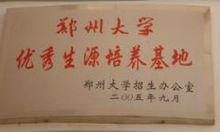 郑州大学
优秀生源培养基地
郑州大学招生办公室
二〇〇五年九月